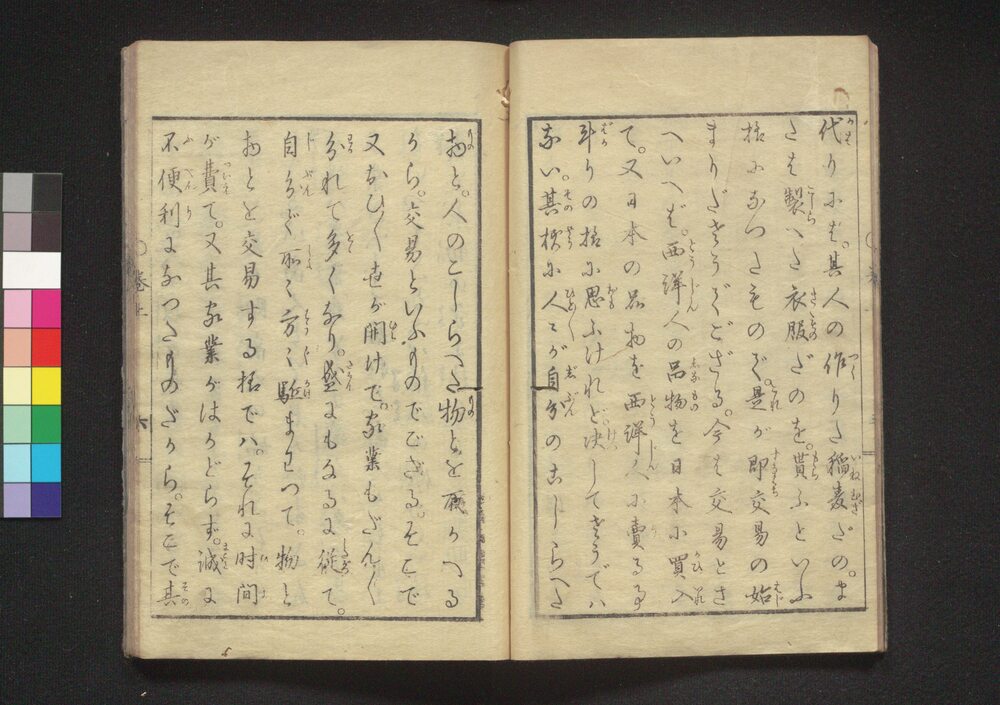 代りにば。其人の作りた稲麦だの。ま
たは製へた衣服だのを。貰ふといふ
様になつたもので。是が即交易の始
まりださうでござる。今は交易とさ
へいへば。西洋人の品物を日本に買入
て。又日本の品物を西洋人に賣る事
斗りの様に思ふけれど。决してさうでハ
ない。其様に人々が自分のこしらへた
物と。人のこしらへた物とを取かへる
から。交易といふものでござる。そこで
又おひ〳〵世が開けて。家業もだん〳〵
分れて多くなり。盛にもなるに従て。
自分で所々方々駈まはつて。物と
物とを交易する様でハ。それに時間
が費て。又其家業がはかどらず。誠に
不便利になつたものだから。そこで其
巻上
六